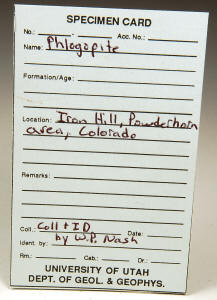 SPECIMEN CARD
No.: - Acc. No.:
Name: Phlogopite
Formation/Age:
Location: Iron Hill, Powderhorn
area, Colorado
Remarks:
Coll.: Coll + ID Date:
Ident. by: by W.P. Nash
Rm.: Cab.: Dr.:
UNIVERSITY OF UTAH
DEPT. OF GEOL. & GEOPHYS.